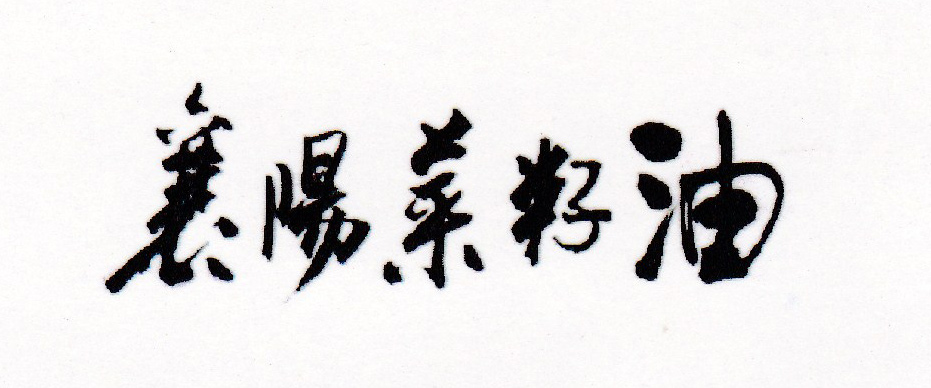 襄陽菜籽油